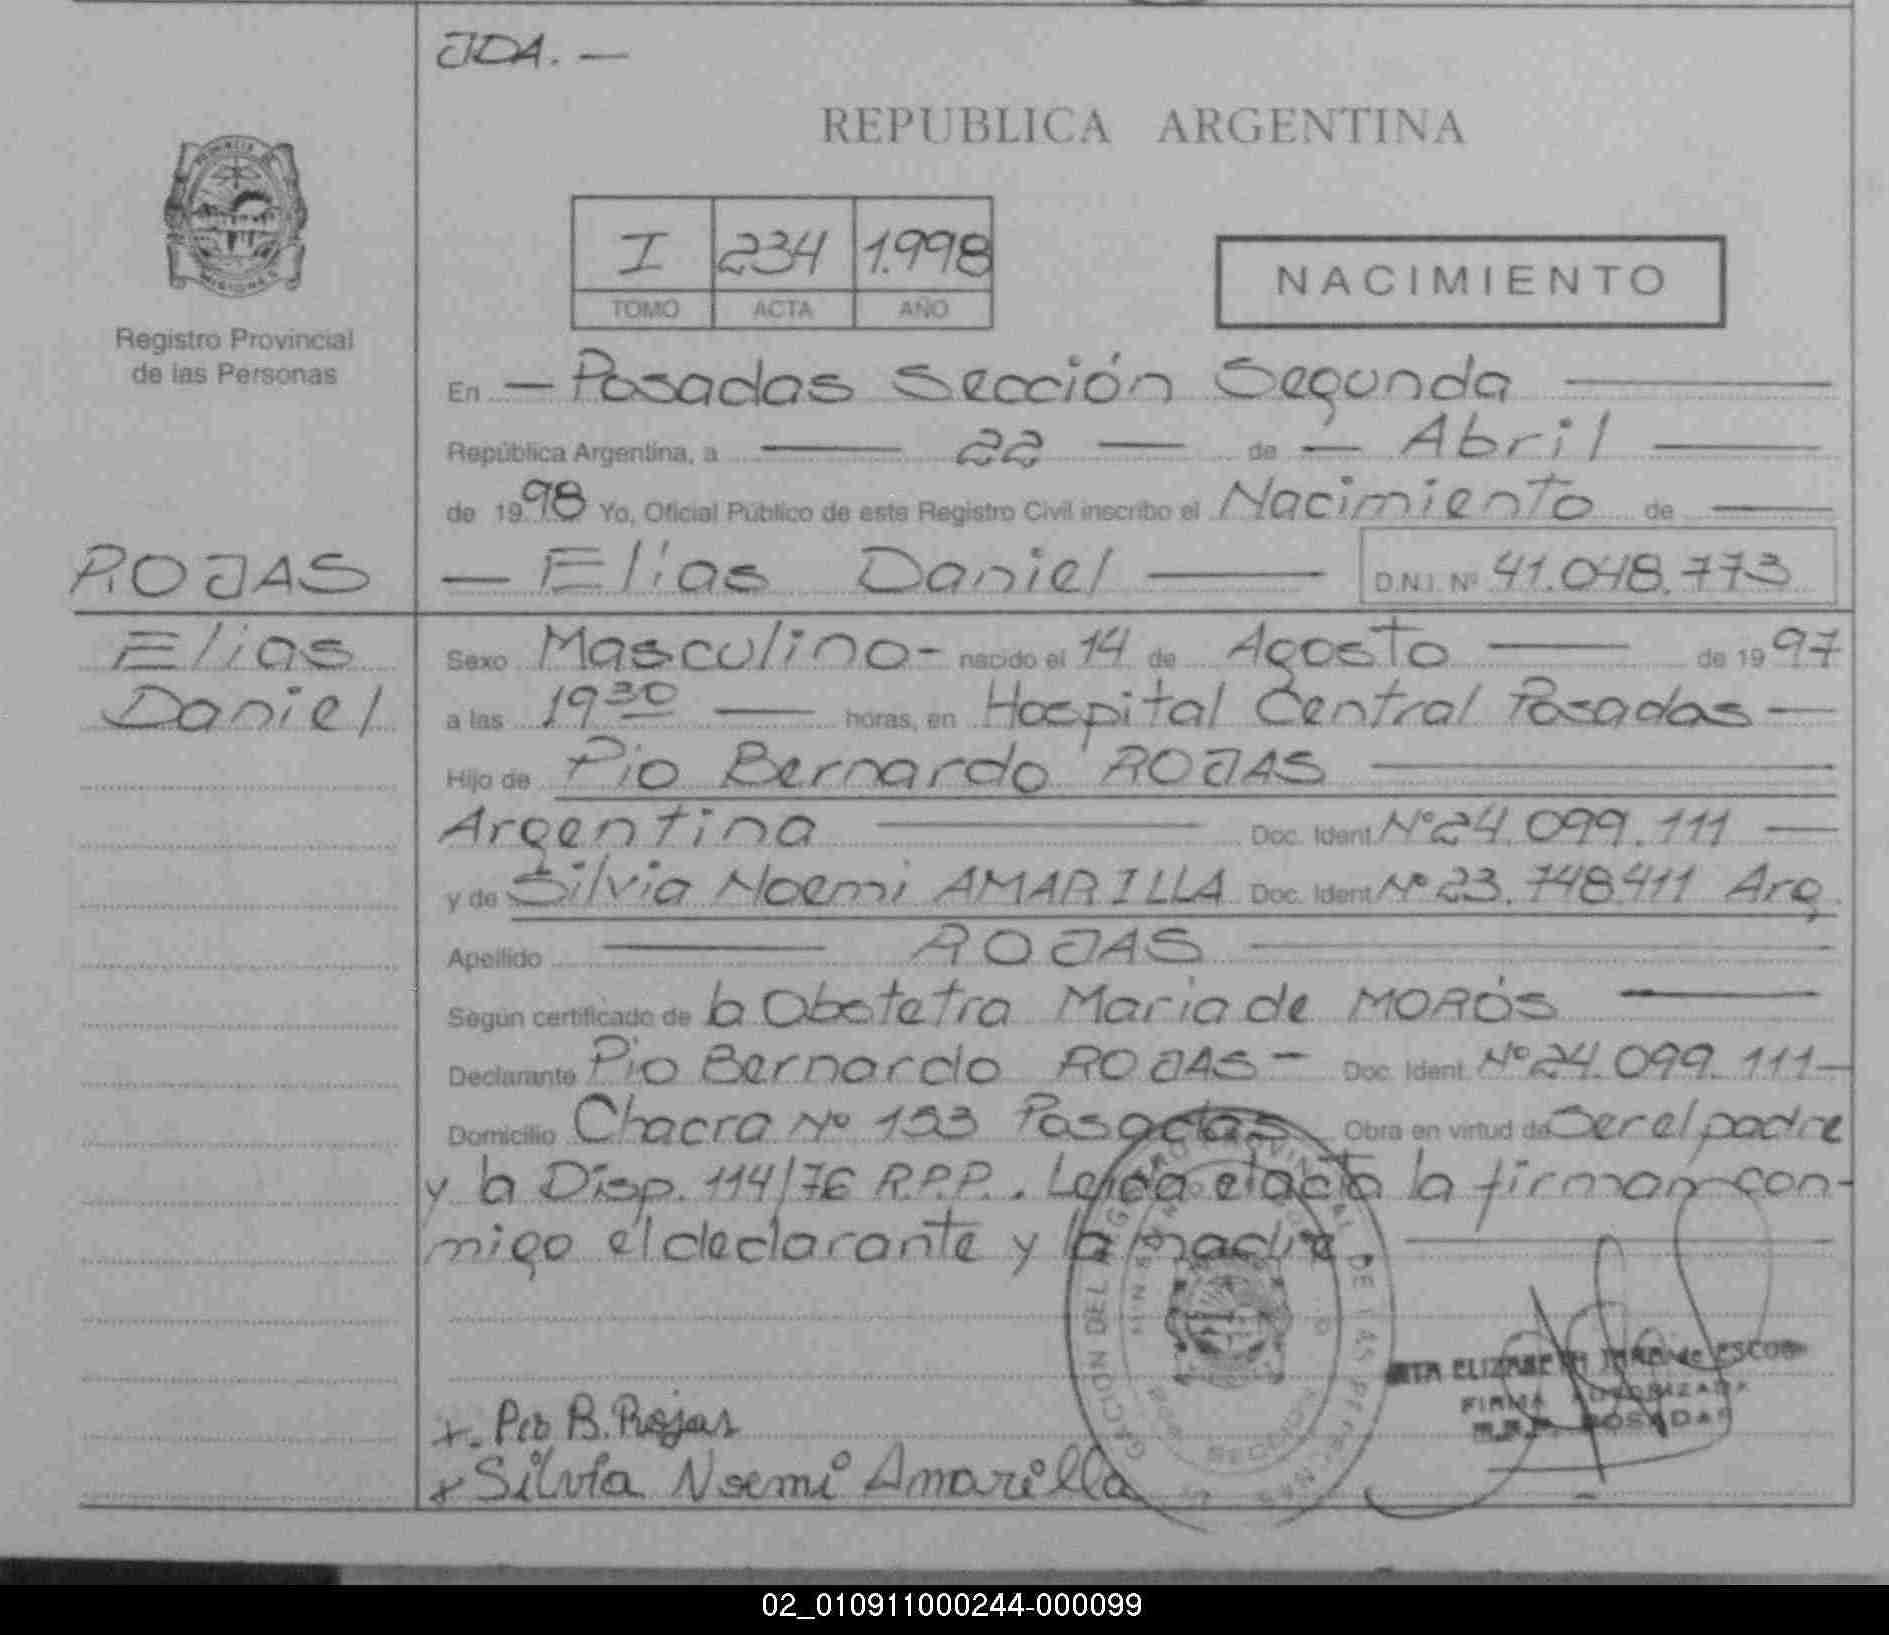 JDA. —
REPUBLICA ARGENTINA
I 234 1.998
TOMO ACTA AÑO
NACIMIENTO
Registro Provincial
de las Personas
En — Posadas Sección Segunda —
República Argentina, a — 22 — de — Abril —
de 1998 Yo, Oficial Público de este Registro Civil inscribo el Nacimiento de —
ROJAS
— Elias Daniel — D.N.I. Nº 41.048.773
Elias
Daniel
Sexo Masculino - nacido el 14 de Agosto — de 1997
a las 19 30 — horas, en Hospital Central Posadas —
Hijo de Pio Bernardo ROJAS —
Argentina — Doc. Ident. Nº 24.099.111 —
y de Silvia Noemi AMARILLA Doc. Ident. Nº 23.748.411 Arg.
Apellido — ROJAS —
Según certificado de la Obstetra Maria de MORÓS —
Declarante Pio Bernardo ROJAS — Doc. Ident. Nº 24.099.111 —
Domicilio Chacra Nº 153 Posadas Obra en virtud de Ser el padre
y la Disp. 114/76 R.P.P.. Leida el acta la firman con-
migo el declarante y la madre. —
ELIZABETH
FIRMA AUTORIZADA
POSADAS
+. Pio B. Rojas
+ Silvia Noemi Amarilla
02_010911000244-000099